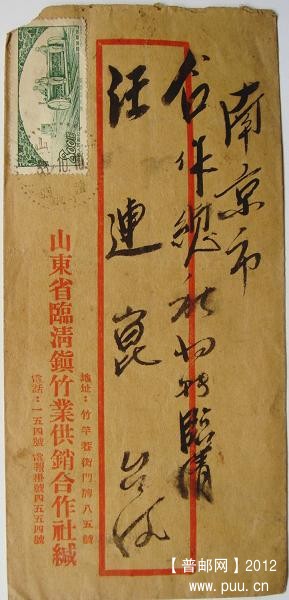 南京市
合作總社內轉臨清
汪連崑 台收
地址：竹竿巷街門牌八五號
山東省臨清鎮竹業供銷合作社緘
電話：一五四號 電報掛號四五五四號
【普邮网】2012
www.puu.cn